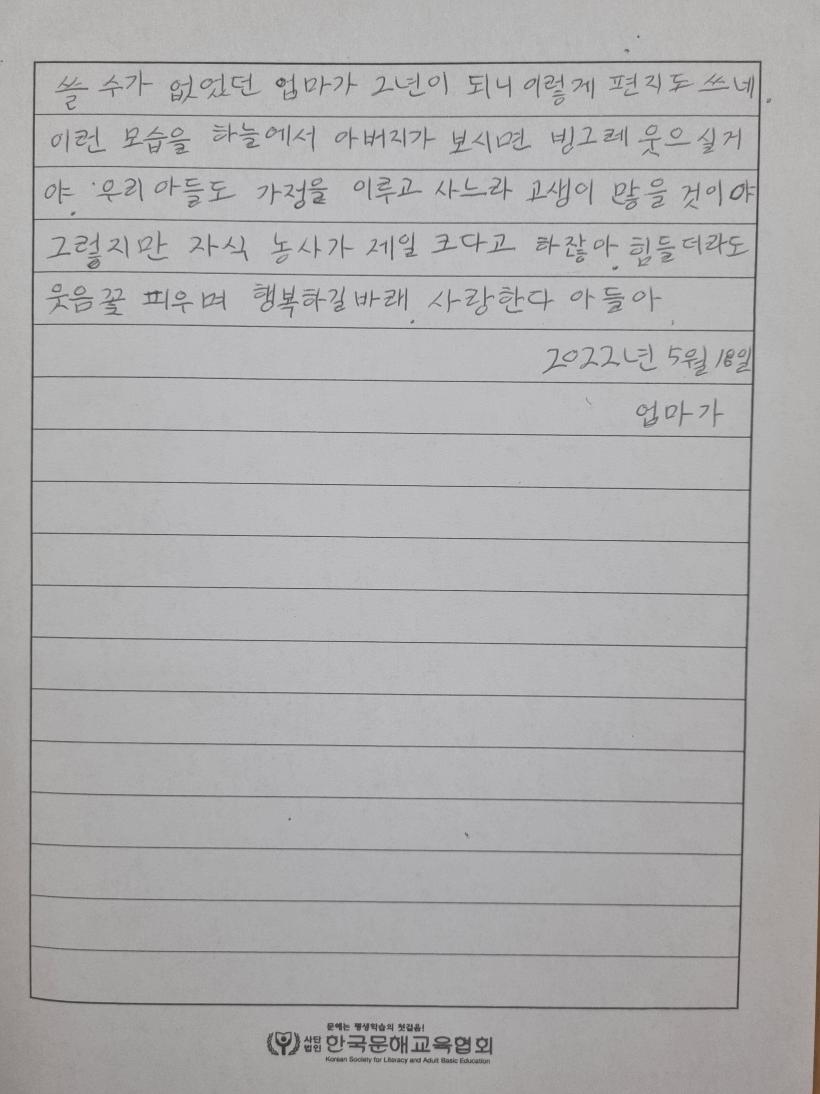 쓸 수가 없었던 엄마가 2년이 되니 이렇게 편지도 쓰네.
이런 모습을 하늘에서 아버지가 보시면 빙그레 웃으실거
야. 우리 아들도 가정을 이루고 사느라 고생이 많을 것이야
그렇지만 자식 농사가 제일 크다고 하잖아. 힘들더라도
웃음꽃 피우며 행복하길 바래. 사랑한다 아들아.
2022년 5월 18일
엄마가
문해는 평생학습의 첫걸음!
사단법인 한국문해교육협회
Korean Society for Literacy and Adult Basic Education